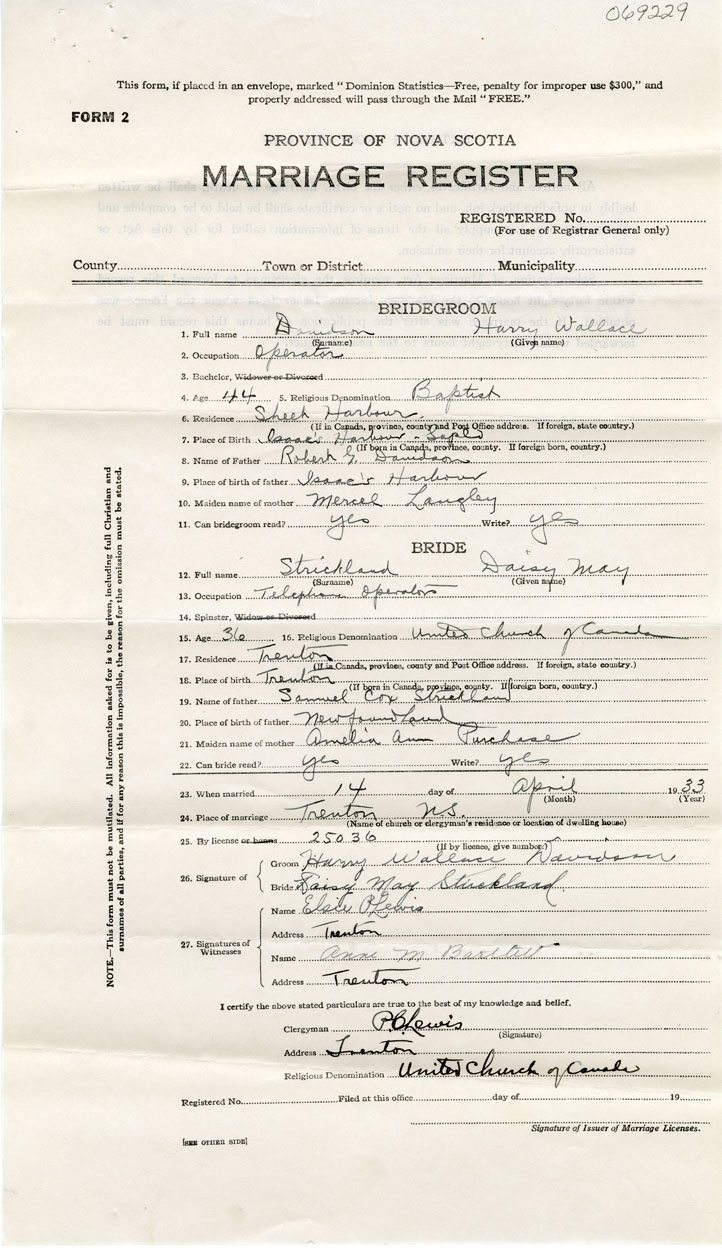 069229
This form, if placed in an envelope, marked "Dominion Statistics—Free, penalty for improper use $300," and
properly addressed will pass through the Mail "FREE."
FORM 2
PROVINCE OF NOVA SCOTIA
MARRIAGE REGISTER
REGISTERED No.
(For use of Registrar General only)
County Town or District Municipality
BRIDEGROOM
1. Full name Davidson Harry Wallace
(Surname) (Given name)
2. Occupation Operator
3. Bachelor, Widower or Divorced
4. Age 44 5. Religious Denomination Baptist
6. Residence Sheet Harbour
(If in Canada, province, county and Post Office address. If foreign, state country.)
7. Place of Birth Isaac's Harbour
(If born in Canada, province, county. If foreign born, country.)
8. Name of Father Robert G. Davidson
9. Place of birth of father Isaac's Harbour
10. Maiden name of mother Mercel Langley
11. Can bridegroom read? yes Write? yes
BRIDE
12. Full name Strickland Daisy May
(Surname) (Given name)
13. Occupation Telephone Operator
14. Spinster, Widow or Divorced
15. Age 36 16. Religious Denomination United Church of Canada
17. Residence Trenton
(If in Canada, province, county and Post Office address. If foreign, state country.)
18. Place of birth Trenton
(If born in Canada, province, county. If foreign born, country.)
19. Name of father Samuel Cox Strickland
20. Place of birth of father Newfoundland
21. Maiden name of mother Amelia Ann Purchase
22. Can bride read? yes Write? yes
23. When married 14 day of April 1933
(Month) (Year)
24. Place of marriage Trenton N.S.
(Name of church or clergyman's residence or location of dwelling house)
25. By license or banns 25036
(If by licence, give number)
26. Signature of Groom Harry Wallace Davidson
Bride Daisy May Strickland
27. Signatures of Witnesses
Name Elsie P Lewis
Address Trenton
Name Anne M Bartlett
Address Trenton
I certify the above stated particulars are true to the best of my knowledge and belief.
Clergyman P.C. Lewis
(Signature)
Address Trenton
Religious Denomination United Church of Canada
Registered No. Filed at this office day of 19
Signature of Issuer of Marriage Licenses.
[SEE OTHER SIDE]
NOTE.—This form must not be mutilated. All information asked for is to be given, including full Christian and
surnames of all parties, and if for any reason this is impossible, the reason for the omission must be stated.